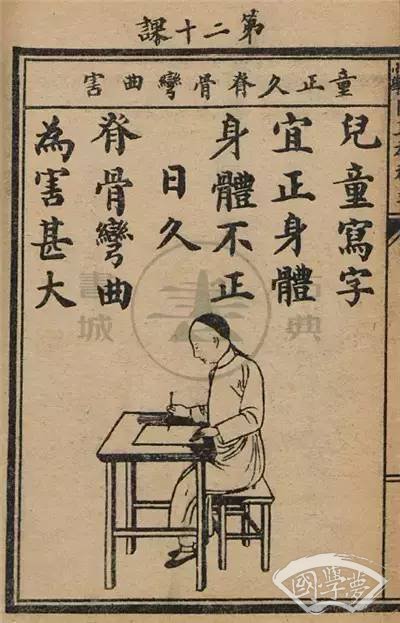 第二十課
童正久脊骨彎曲害
兒童寫字
宜正身體
身體不正
日久
脊骨彎曲
為害甚大
書城
典
國學夢